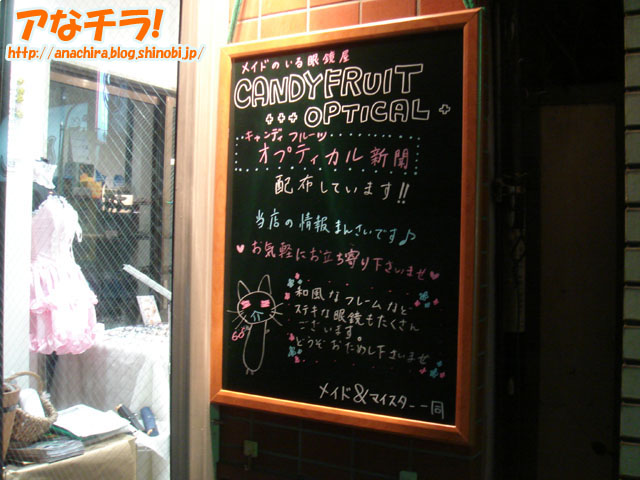 アなチラ!
http://anachira.blog.shinobi.jp/
メイドのいる眼鏡屋
CANDYFRUIT
+++ OPTICAL +
キャンディフルーツ
オプティカル新聞
配布しています!!
当店の情報まんさいです♪
♥お気軽にお立ち寄り下さいませ♥
和風なフレームなど
ステキな眼鏡もたくさん
ございます。
どうぞおためし下さいませ
メイド&マイスター一同